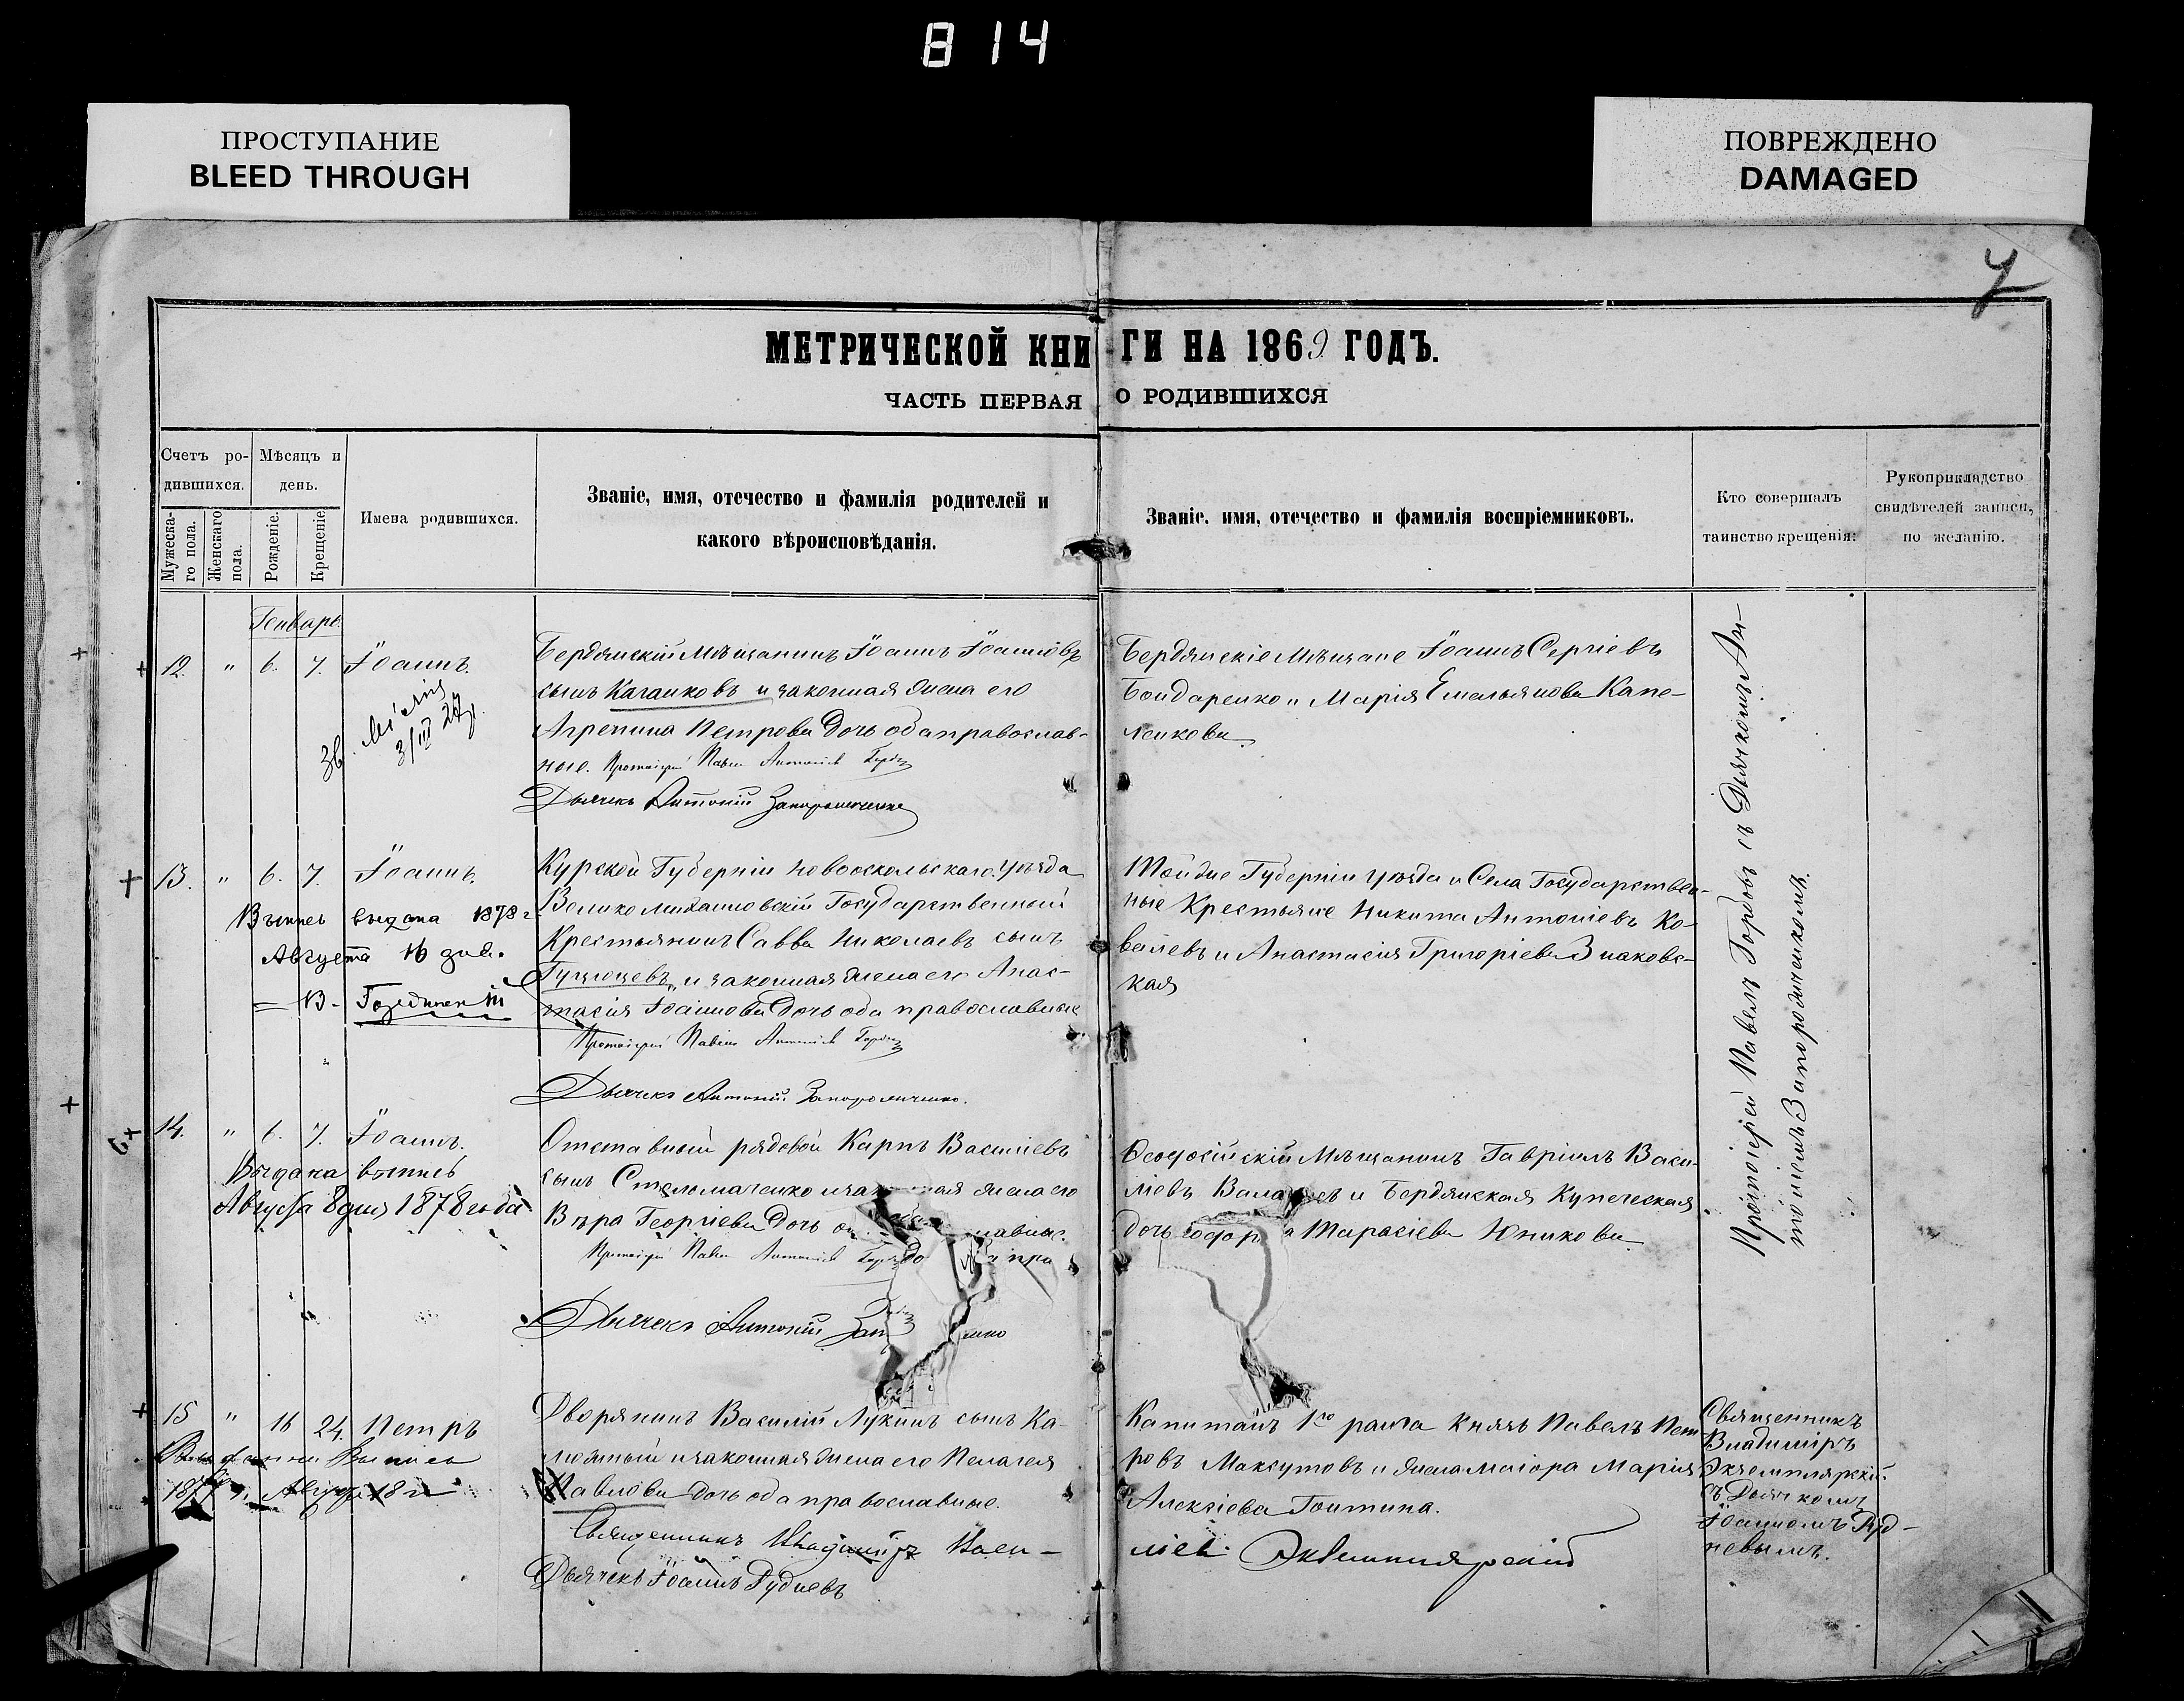 814
ПРОСТУПАНИЕ
BLEED THROUGH
ПОВРЕЖДЕНО
DAMAGED
7
МЕТРИЧЕСКОЙ КНИГИ НА 1869 ГОДЪ.
ЧАСТЬ ПЕРВАЯ О РОДИВШИХСЯ
Счетъ ро-
дившихся.
Мужеска-
го пола.
Женскаго
пола.
Мѣсяцъ и
день.
Рожденіе.
Крещеніе
Имена родившихся.
Званіе, имя, отечество и фамилія родителей и
какого вѣроисповѣданія.
Званіе, имя, отечество и фамилія воспріемниковъ.
Кто совершалъ
таинство крещенія:
Рукоприкладство
свидѣтелей записи,
по желанію.
Генваре
12. " 6. 7. Іоаннъ.
3/III 27
Бердянскій Мѣщанинъ Іоаннъ Іоанновъ
сынъ Каганковъ и законная жена его
Агрепина Петрова дочь оба православ-
ные. Протоіерей Павелъ Гербовъ
Дьячекъ Антоній Запорожченко
Бердянскіе Мѣщане Іоаннъ Сергіевъ
Бондаренко и Марія Емельянова Капе-
ленкова
Протоіерей Павелъ Гербовъ съ Дьячкомъ Ан-
тоніемъ Запорожченкомъ.
13. " 6. 7. Іоаннъ.
выдана 1878 г.
Августа 16 дня.
Курской Губерніи Новооскольскаго уѣзда
Велико Михайловскій Государственный
Крестьянинъ Савва Николаевъ сынъ
и законная жена его Анас-
тасія Іоаннова дочь оба православные
Протоіерей Павелъ Гербовъ
Дьячекъ Антоній Запорожченко.
Тойже Губерніи уѣзда и Села Государствен-
ные Крестьяне Никита Антоніевъ Ко-
валевъ и Анастасія Григоріева Знаковс-
кая
14. " 6. 7. Іоаннъ.
Выдана выпись
Августа 8 дня 1878 года
Отставный рядовой Карпъ Василіевъ
сынъ Стельмаченко и жена его
Вѣра Георгіева дочь
Протоіерей Павелъ
Дьячекъ Антоній
Ѳеодосійскій Мѣщанинъ Гавріилъ Васи-
ліевъ и Бердянская Купеческая
дочь Тарасіева Юникова
15 " 16 24. Петръ
Дворянинъ Василій Лукинъ сынъ Ка-
и законная жена его Пелагея
Павлова дочь оба православные.
Священникъ Владиміръ Васи-
ліев. Экземплярскій
Дьячекъ Іоаннъ Рудневъ
Капитанъ 1го ранга Князь Павелъ Пет
ровъ Максутовъ и жена Маіора Марія
Алексіева Гонтина.
Священникъ
Владиміръ
Экземплярскій
съ Дьячкомъ
Іоанномъ Руд-
невымъ.